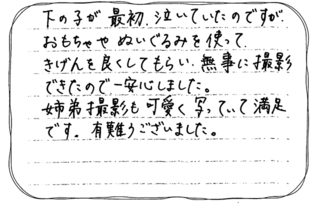 下の子が最初、泣いていたのですが、
おもちゃやぬいぐるみを使って
きげんを良くしてもらい、無事に撮影
できたので一安心しました。
姉弟撮影も可愛く写っていて満足
です。有難うございました。